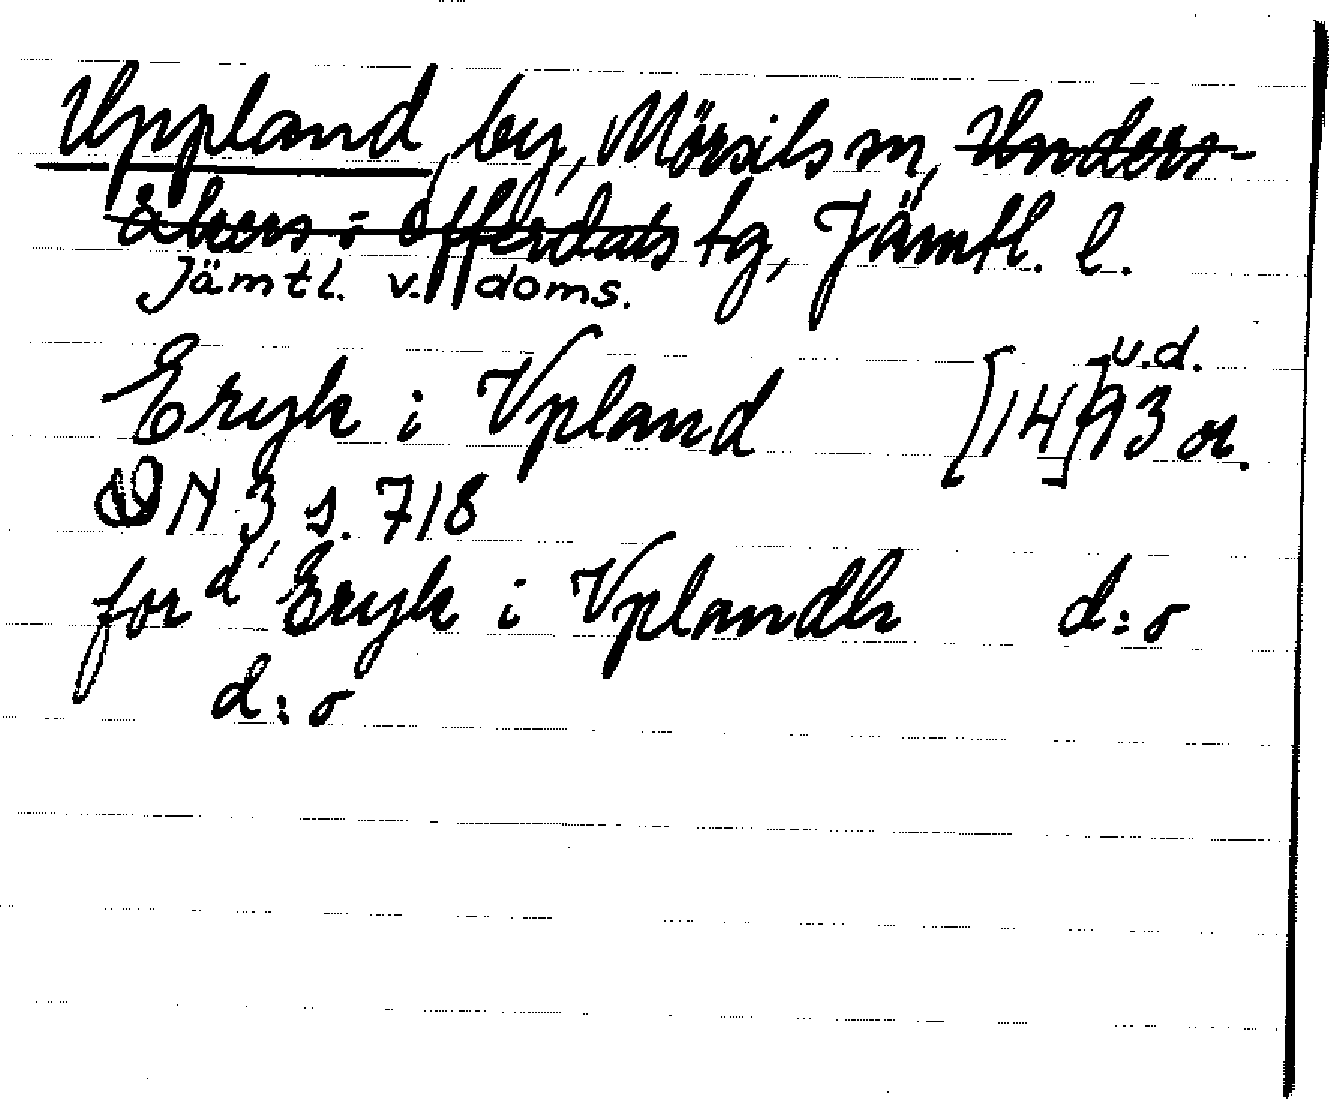 Uppland by, Mörsils sn, Unders-
åkers o Offerdals tg, Jämtl. l.
Jämtl. v. doms.
Eryk i Vpland [14]93 u.d. or.
DN 3, s. 718
for d' Eryk i Vplandh d:o
d:o